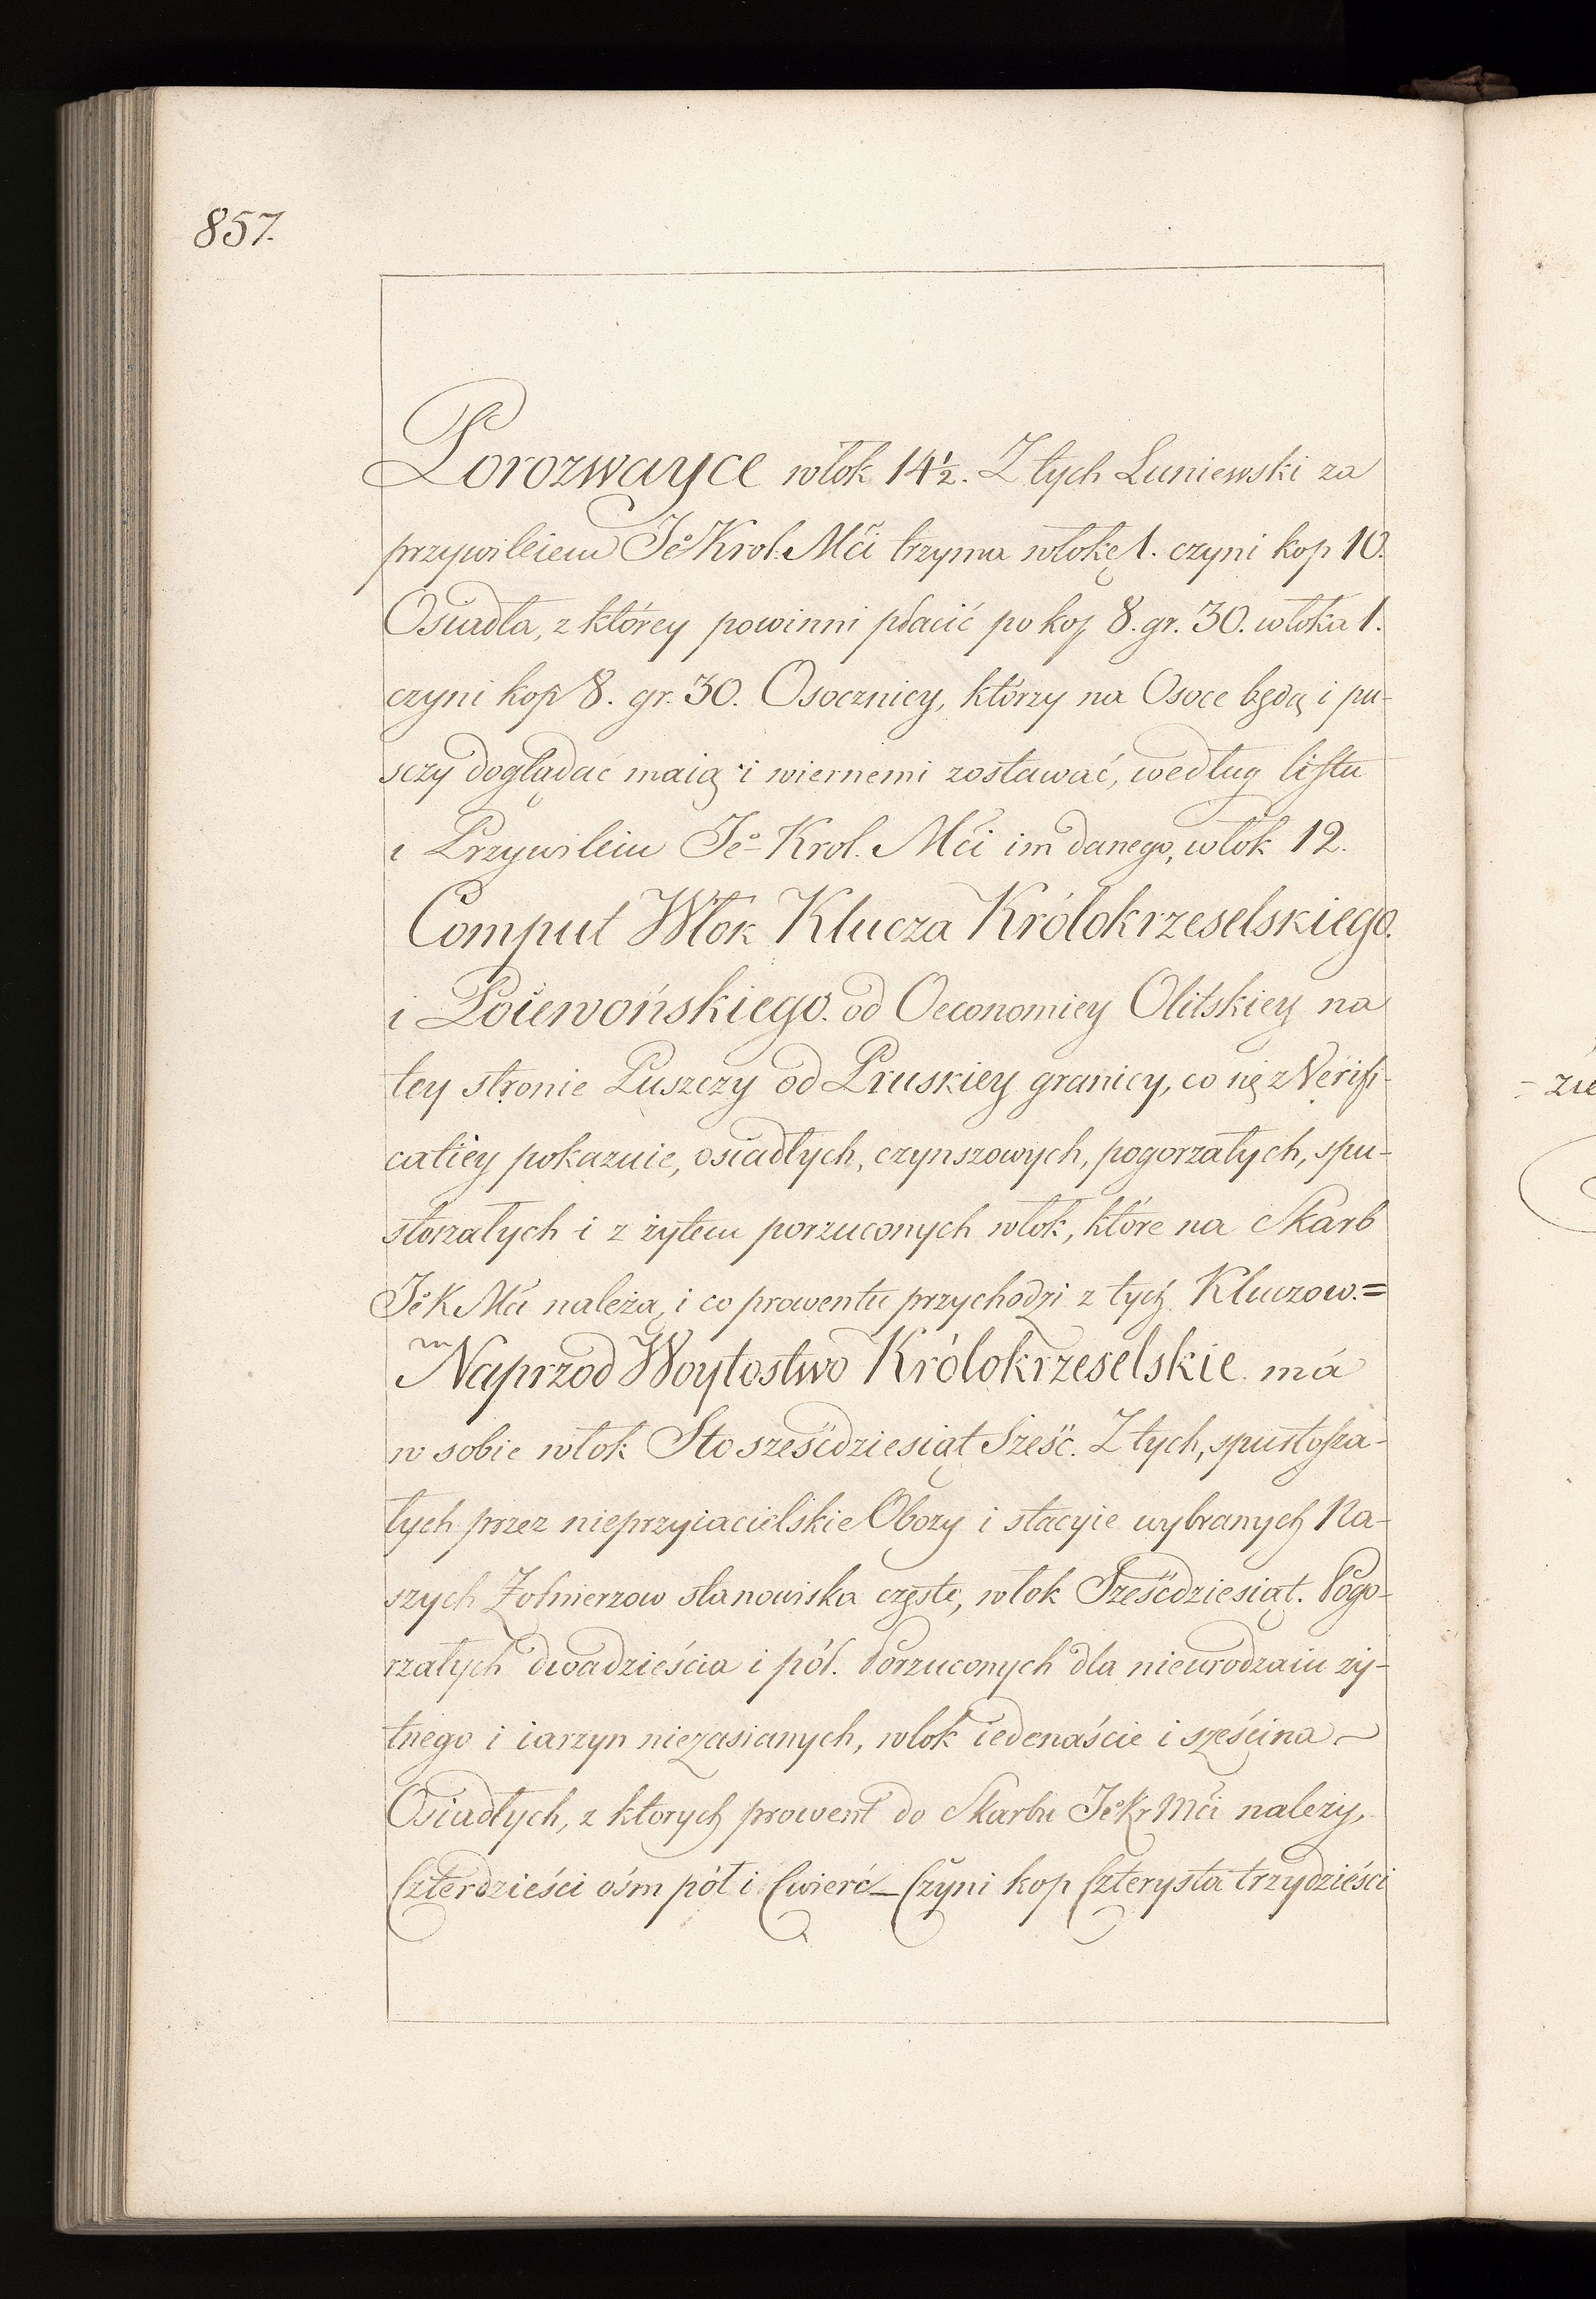 857.
Porozwayce włok 14½. Z tych Luniewski za
przywileiem Jeº Krol. Mći trzyma włokę 1. czyni kop 10.
Osiadła, z którey powinni płacić po kop 8. gr. 30. włoka 1.
czyni kop 8. gr. 30. Osocznicy, którzy na Osoce będą i pu-
sczy doglądać maią i wiernemi zostawać, według listu
i Przywileiu Jeº Krol. Mći im danego, włok 12.
Comput Włok Klucza Królokrzeselskiego.
i Poiewońskiego. od Oeconomiey Olitskiey na
tey stronie Puszczy od Pruskiey granicy, co się z Verifi-
catiey pokazuie, osiadłych, czynszowych, pogorzałych, spu-
stoszałych i z żytem porzuconych włok, które na Skarb
JºK Mći należą, i co prowentu przychodzi z tych Kluczow.=
Naprzod Woytostwo Królokrzeselskie má
w sobie włok Sto sześćdziesiąt Sześć. Z tych, spustosza-
łych przez nieprzyiacielskie Obozy i stacyie wybranych Na-
szych Żołnierzow stanowiska częste, włok Sześćdziesiąt. Pogo-
rzałych dwadzieścia i pół. Porzuconych dla nieurodzaiu ży-
tnego i iarzyn niezasianych, włok iedenaście i sześcina
Osiadłych, z ktorych prowent do Skarbu JºKr Mći należy,
Czterdzieści ośm pół i Cwierć_ Czyni kop Czterysta trzydzieści
zie